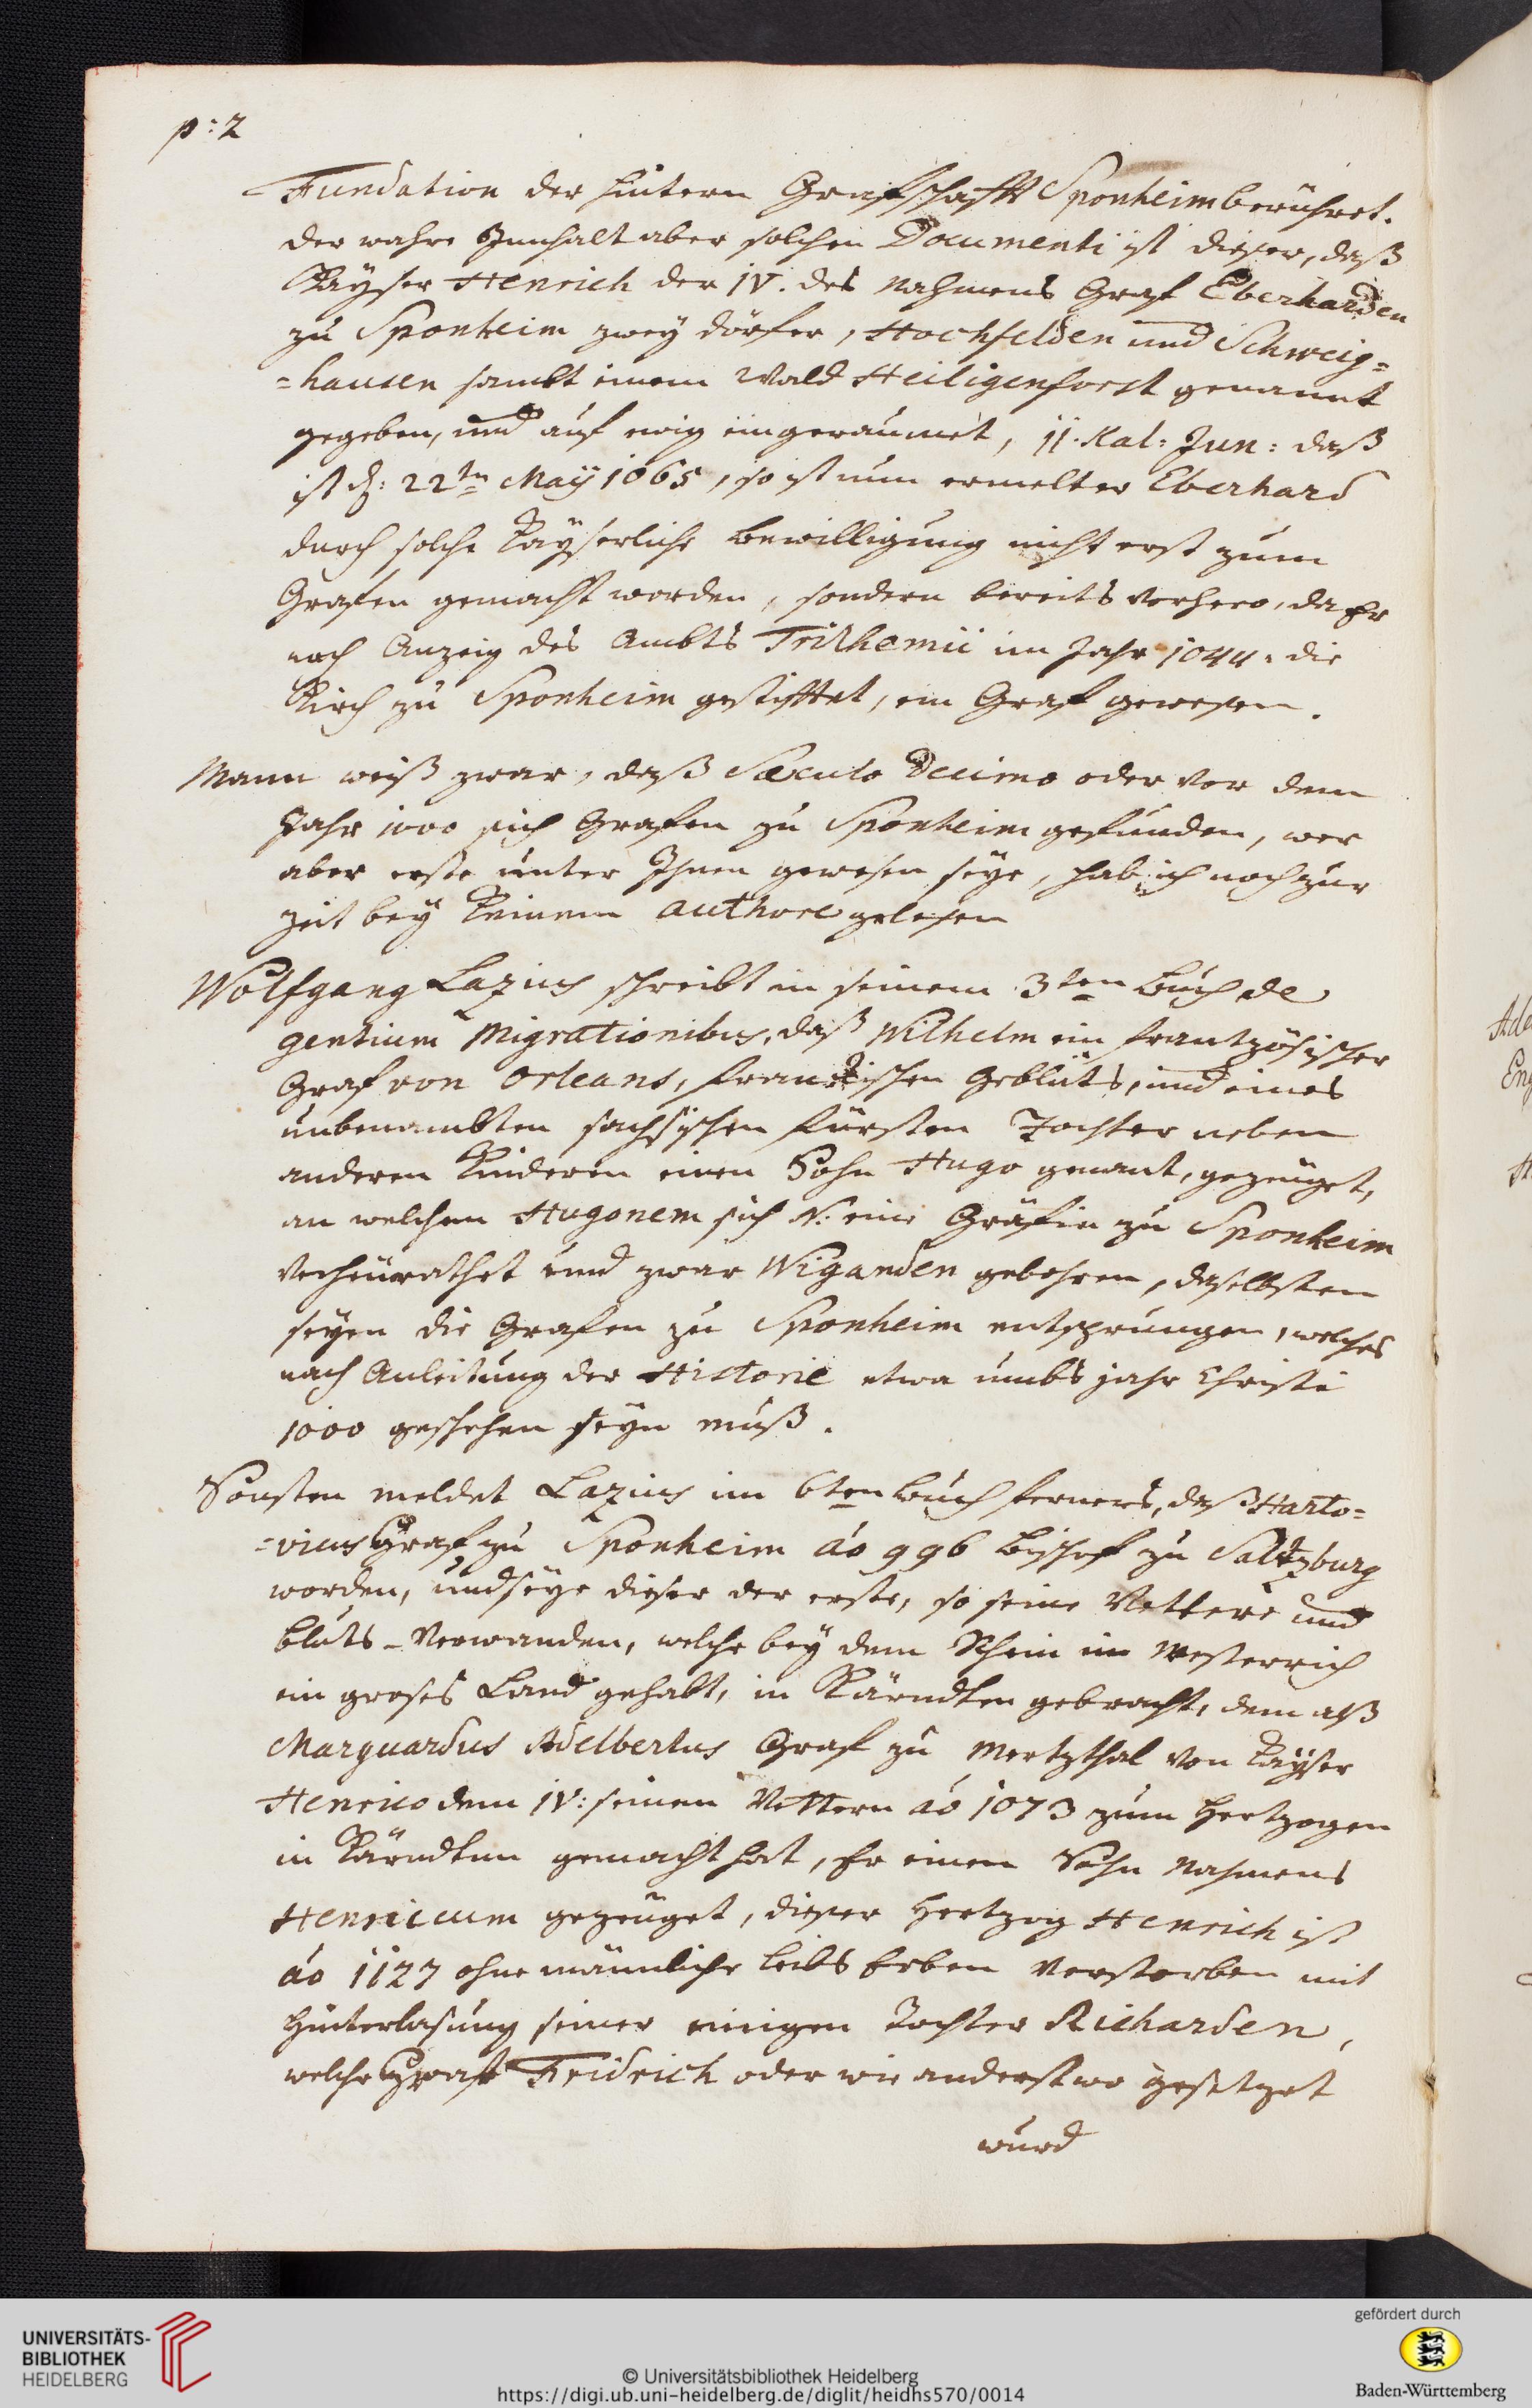 p: 2
Fundation der hintern Graffschafft Sponheim berühret.
der wahre Innhalt aber solchen Documenti ist dieser, daß
Kayser Henrich der IV. des Nahmens Graf Eberharden
zu Sponheim zwey dörfer, Hochfelden und Schweig=
=hausen sambt einem Wald Heiligenforst genannt
gegeben, und auf ewig eingeraumet, 11. Kal: Jun: daß
ist d: 22ten Maÿ 1065, so ist nun ermelter Eberhard
durch solche Kayserliche bewilligung nicht erst zum
Grafen gemacht worden, sondern bereits vorhero, da Er
nach Anzeig des Ambts Trithemii im Jahr 1044. die
Kirch zu Sponheim gestifftet, ein Graf gewesen.
Mann weiß zwar, daß Sæculo Decimo oder vor dem
Jahr 1000 sich Grafen zu Sponheim gefunden, wer
aber erste unter Ihnen gewesen seye, hab ich noch zur
zeit bey Keinem authore gelesen
Wolfgang Lazius schreibt in seinem 3ten Buch de
gentium Migrationibus, daß Wilhelm ein frantzösischer
Graf von Orleans, Franckischen Geblüts, und eines
unbenambten sachsischen fürsten Tochter neben
anderen Kinderen einen Sohn Hugo genant, gezeuget,
an welchen Hugonem sich N: eine Gräfin zu Sponheim
verheurathet und zwar Wiganden gebohren, daselbsten
seyen die Grafen zu Sponheim entsprungen, welches
nach Anleitung der Historie etwa umbs jahr Christi
1000 geschehen seyn muß.
Sonsten meldet Lazius im 6ten Buch ferners, daß Harto=
=vicus Graf zu Sponheim aó 996 bischof zu Saltzburg
worden, und seye dieser der erste, so seine Vettere und
bluts-Verwanden, welche bey dem Rhein im Westerrich
ein groses Land gehabt, in Kärndten gebracht, dem alß
Marquardus Adelbertus Graf zu Mertzthal von Kayser
Henrico dem IV: seinen Vettern aó 1073 zum Hertzogen
in Kärndten gemacht hat, Er einen Sohn Nahmens
Henricum gezeuget, dieser Hertzog Henrich ist
aó 1127 ohne männliche leibs Erben verstorben mit
Hinterlasung seiner einigen Tochter Richarden,
welche Graf Fridrich oder wie anderstwo gesetzet
wurd
Ade
Eng
UNIVERSITÄTS-
BIBLIOTHEK
HEIDELBERG
© Universitätsbibliothek Heidelberg
https://digi.ub.uni-heidelberg.de/diglit/heidhs570/0014
gefördert durch
Baden-Württemberg